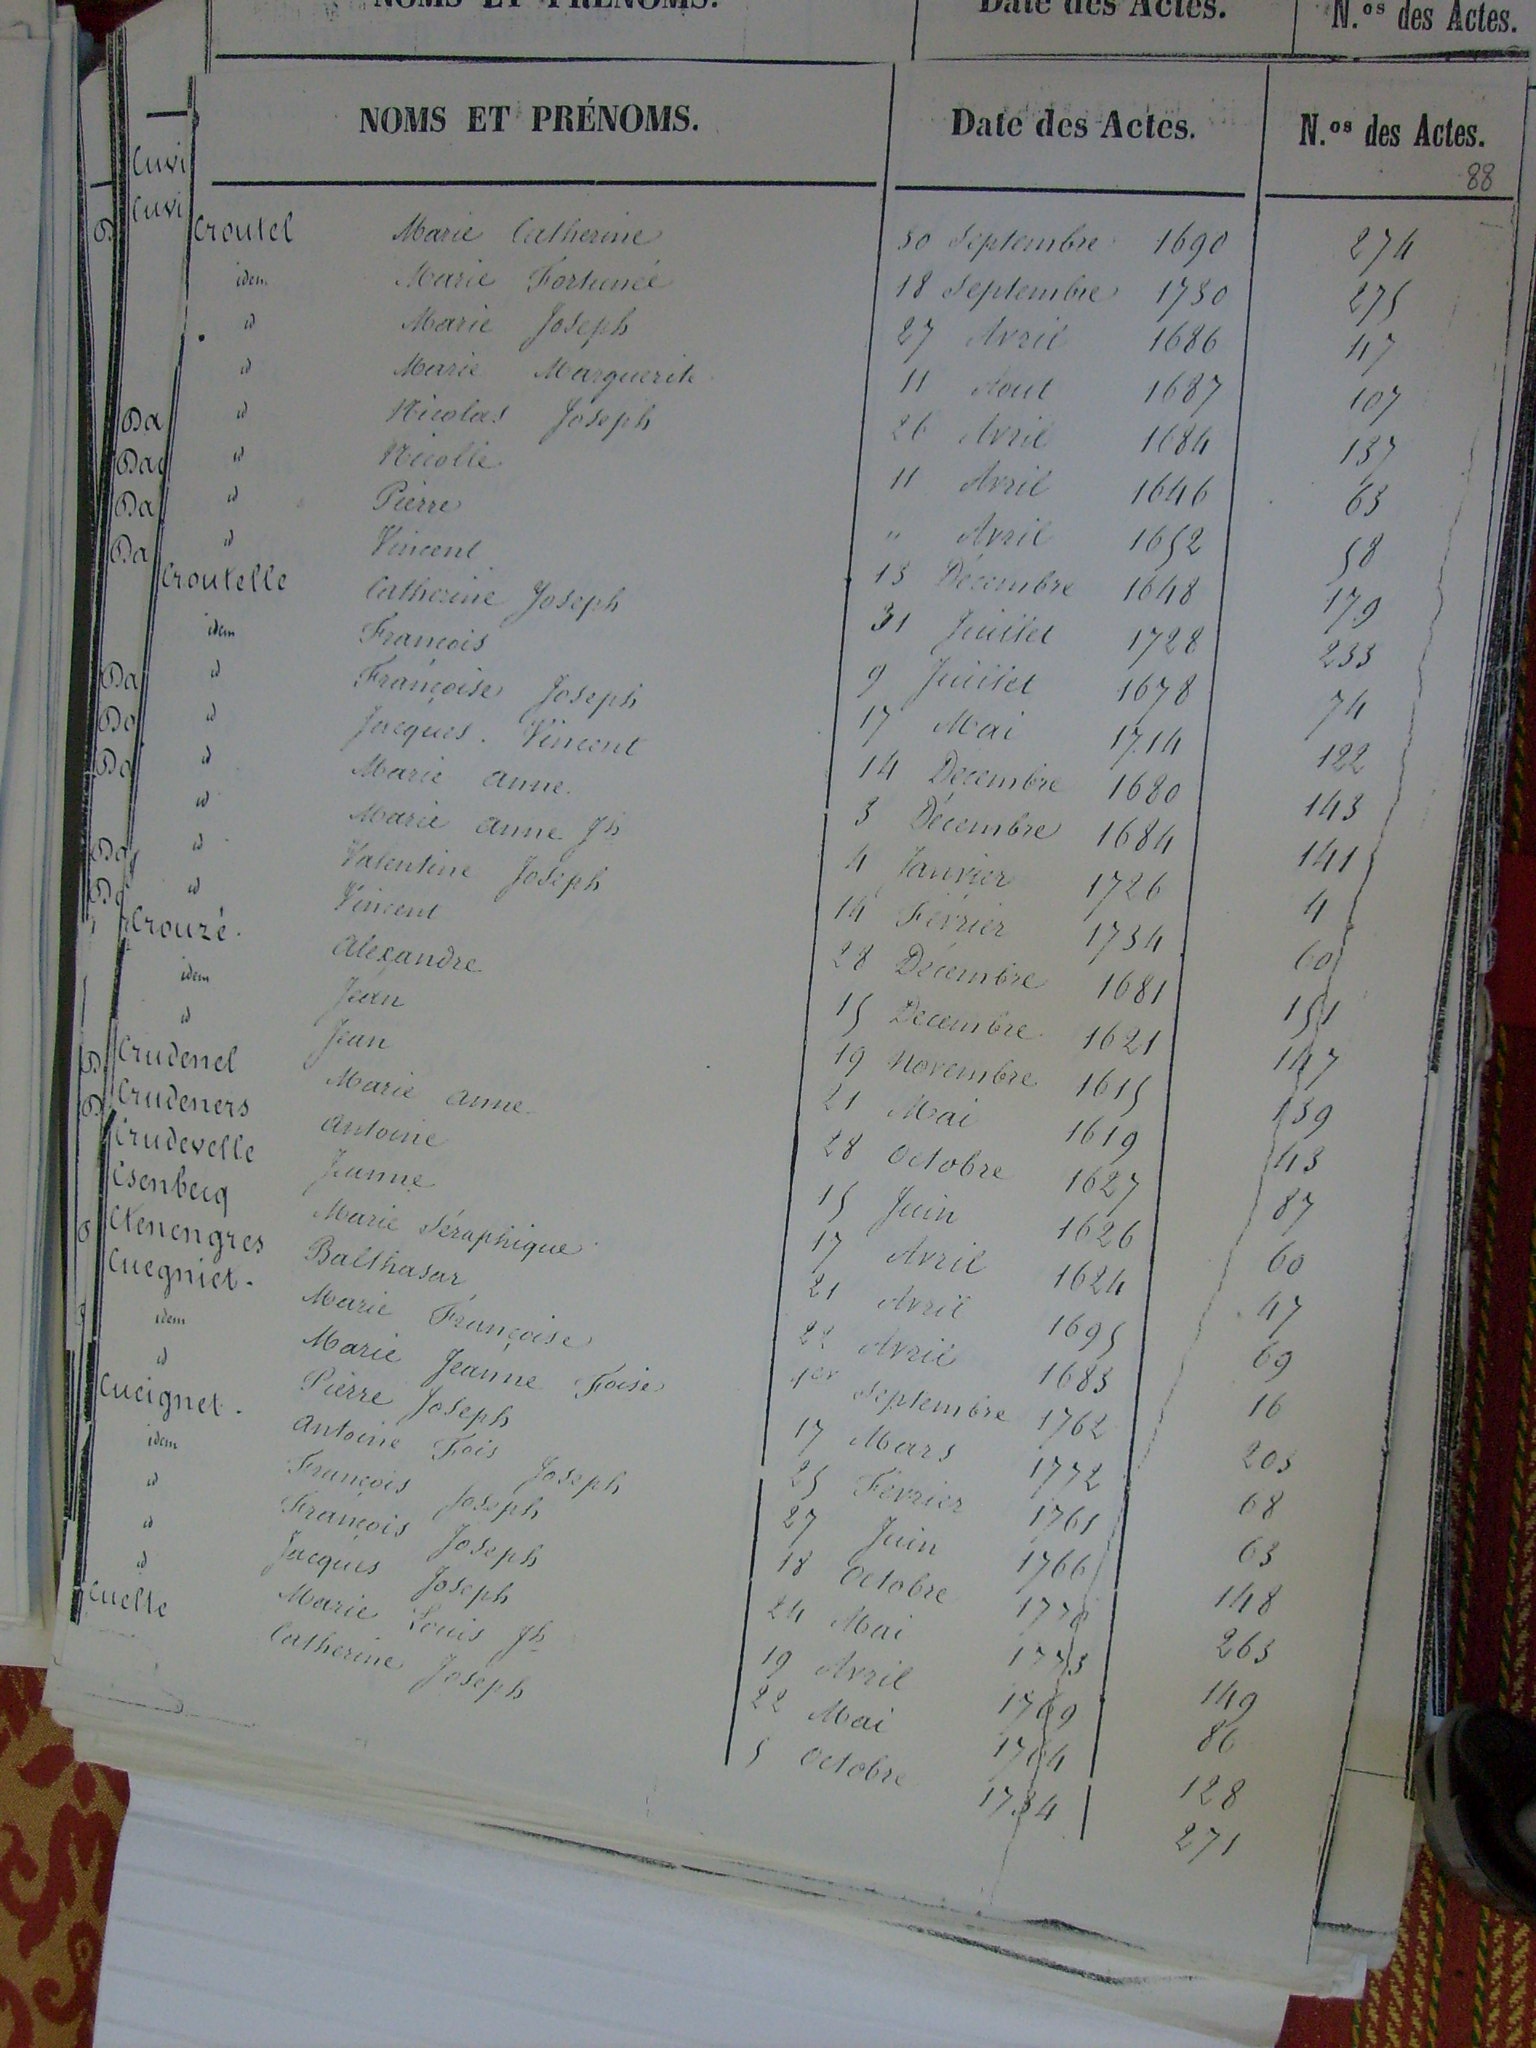 NOMS ET PRÉNOMS. Date des Actes. N.os des Actes.
NOMS ET PRÉNOMS. Date des Actes. N.os des Actes.
88
Cuvi
Cuvi
Croutel Marie Catherine 30 Septembre 1690 274
idem Marie Fortunée 18 Septembre 1730 275
id Marie Joseph 27 Avril 1686 47
id Marie Marguerite 11 Aout 1687 107
id Nicolas Joseph 26 Avril 1684 137
id Nicolle 11 Avril 1646 63
id Pierre " Avril 1652 58
id Vincent 13 Decembre 1648 179
Croutelle Catherine Joseph 31 Juillet 1728 233
idem François 9 Juillet 1678 74
id Françoise Joseph 17 Mai 1714 122
id Jacques Vincent 14 Decembre 1680 143
id Marie anne 3 Décembre 1684 141
id Marie anne Jh 4 Janvier 1726 4
id Valentine Joseph 14 Février 1734 60
id Vincent 28 Décembre 1681 151
Crouzé Alexandre 15 Decembre 1621 147
idem Jean 19 Novembre 1615 139
id Jean 21 Mai 1619 43
Crudenel Marie anne 28 Octobre 1627 87
Crudeners Antoine 15 Juin 1626 60
Crudevelle Jeanne 17 Avril 1624 47
Csenbecq Marie Séraphique 21 Avril 1695 69
Ctenengres Balthasar 22 Avril 1683 16
Cuegniet Marie Françoise 1er Septembre 1762 203
idem Marie Jeanne Foise 17 Mars 1772 68
id Pierre Joseph 25 Février 1761 63
Cucignet Antoine Fois Joseph 27 Juin 1766 148
idem François Joseph 18 Octobre 1770 263
id François Joseph 24 Mai 1773 149
id Jacques Joseph 19 Avril 1769 86
id Marie Louis Jh 22 Mai 1764 128
Cuelte Catherine Joseph 5 Octobre 1734 271